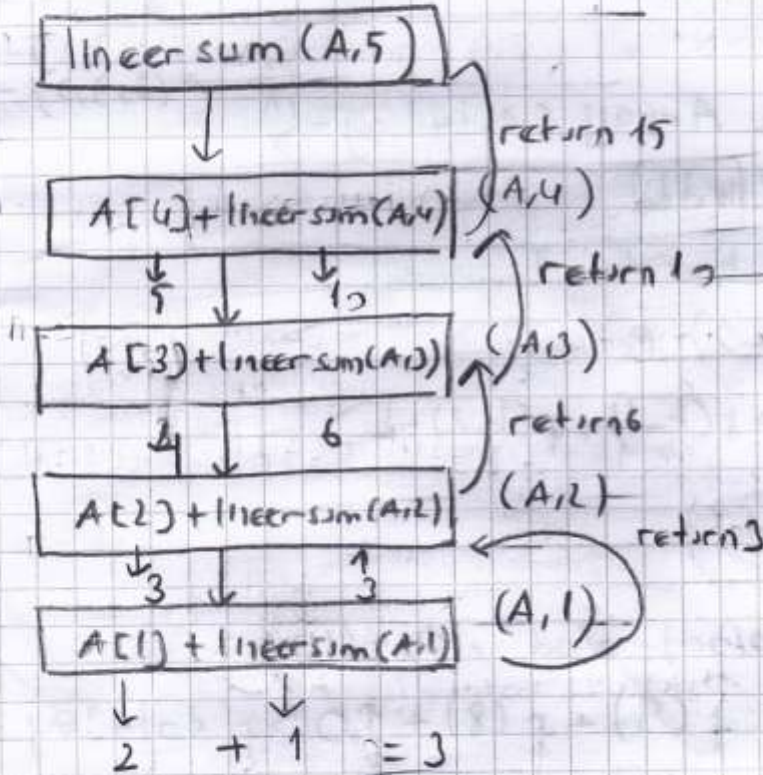 lineer sum (A,5)
return 15
A[4]+lineersum(A,4) (A,4)
5 10
return 10
A[3]+lineersum(A,3) (A,3)
4 6
return 6
A[2]+lineersum(A,2) (A,2)
return 3
3 3
A[1] + lineersum(A,1) (A,1)
2 + 1 = 3